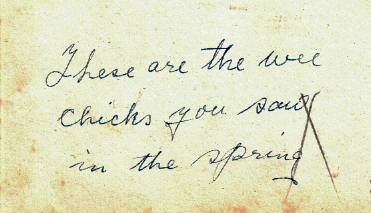 These are the wee
chicks you saw
in the spring